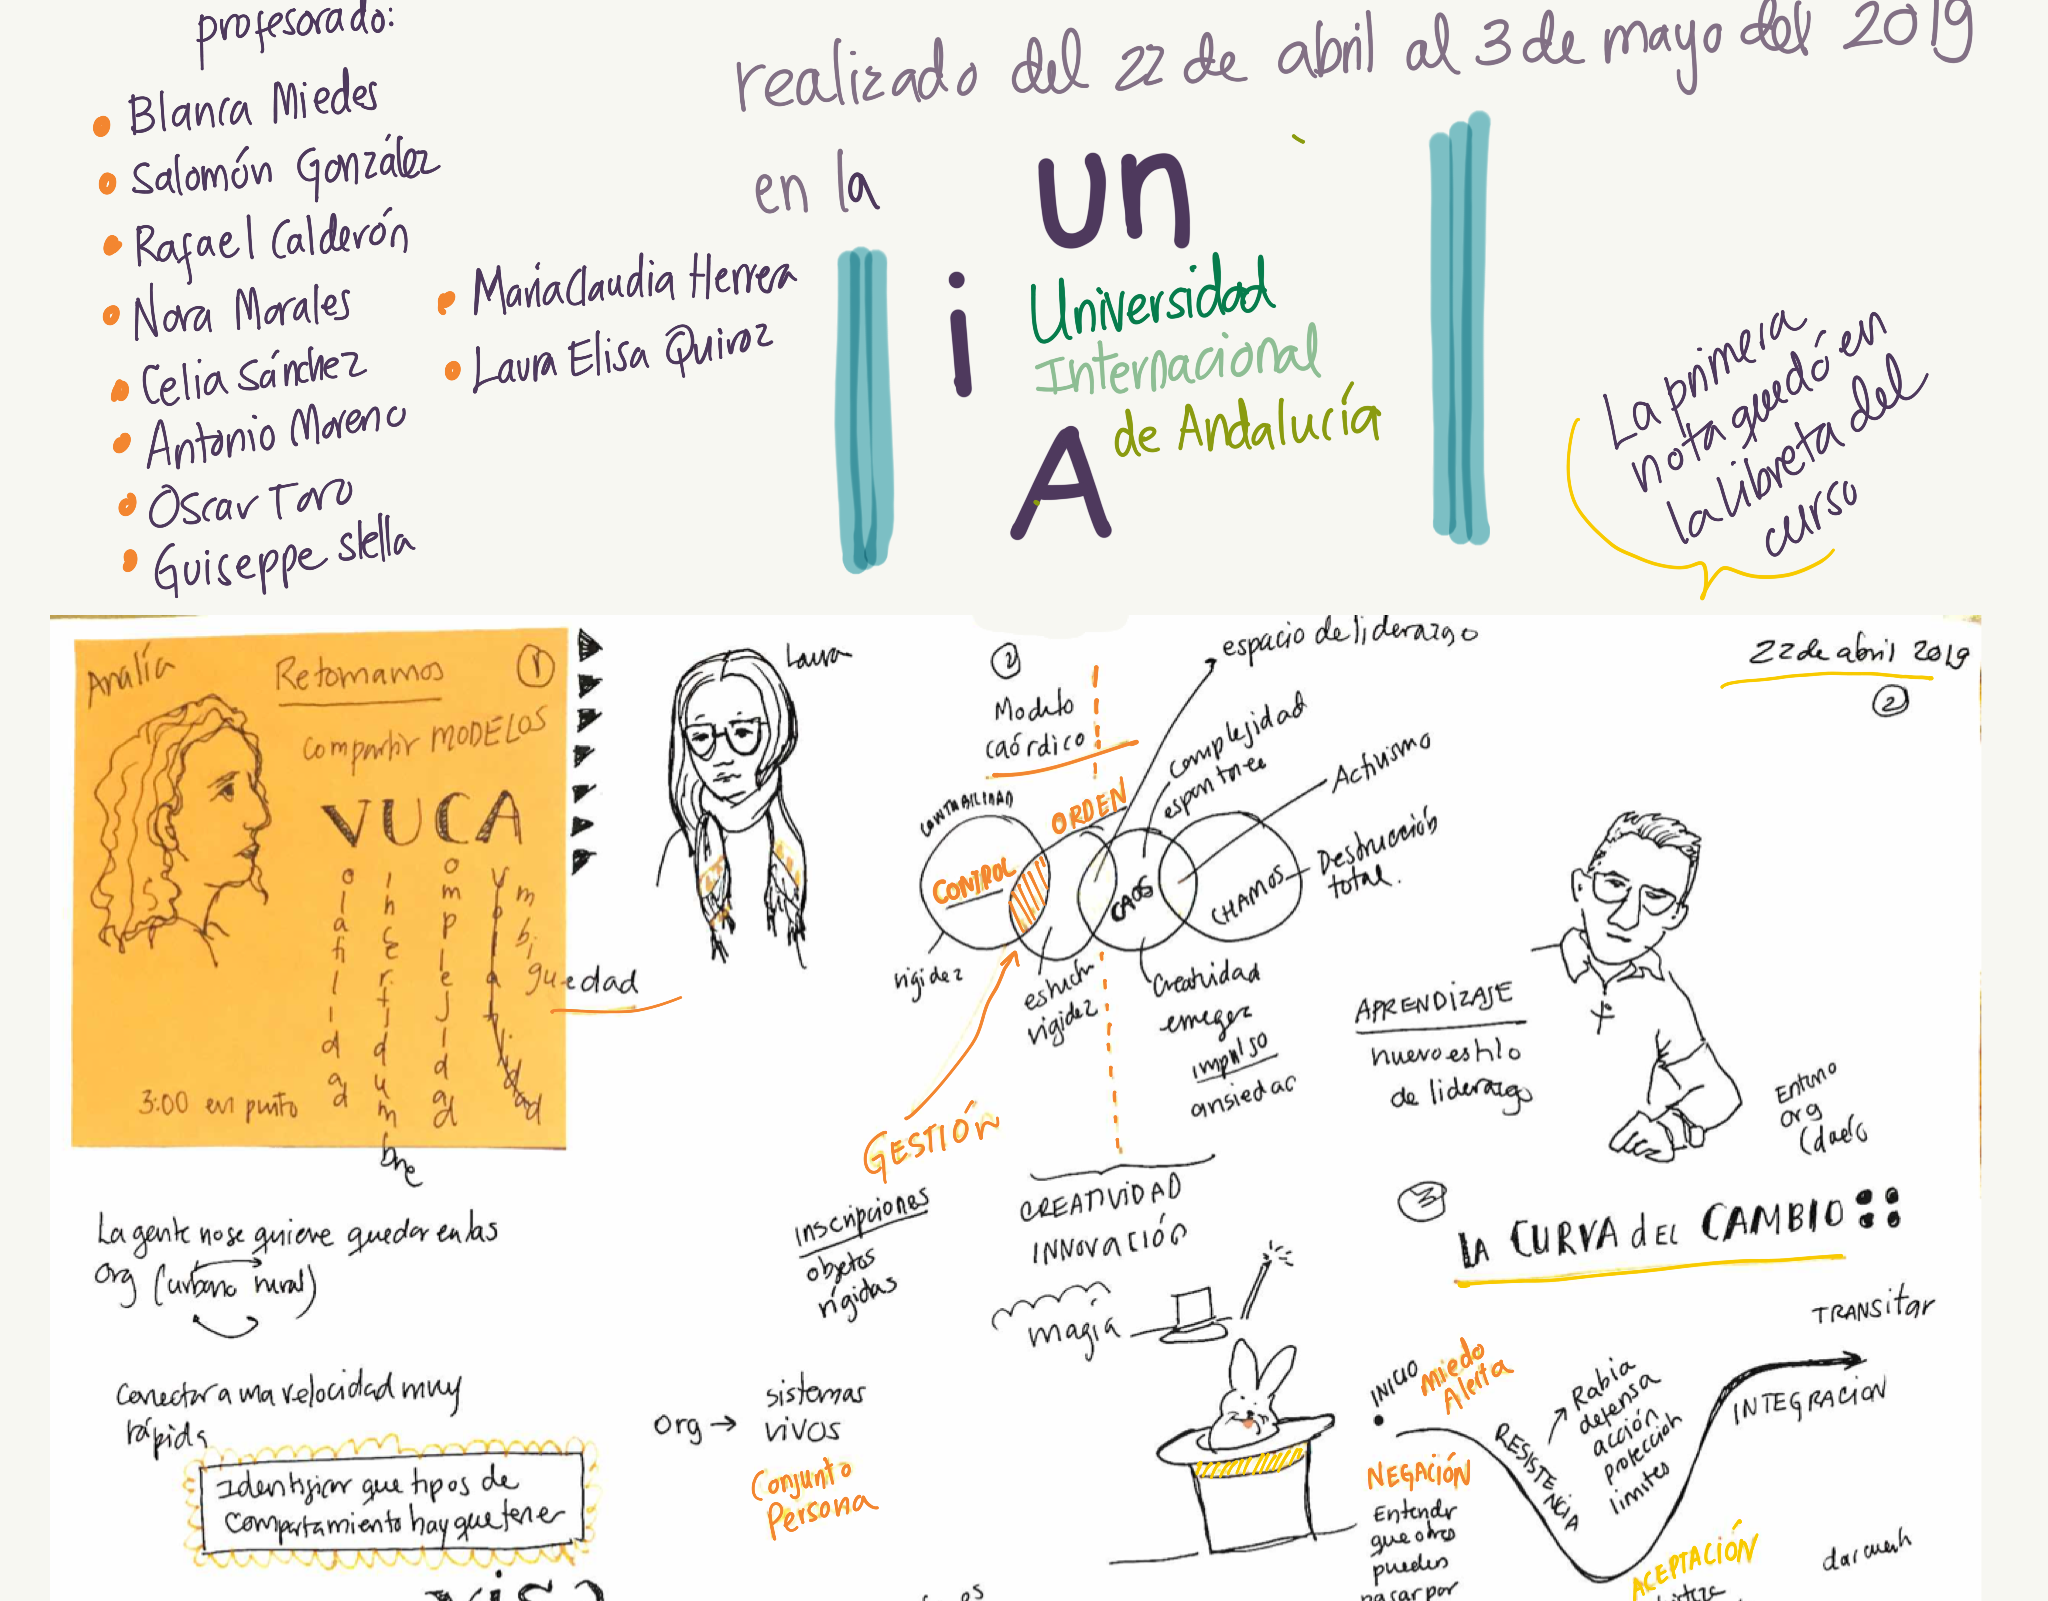 profesorado:
Blanca Miedes
Salomón González
Rafael Calderón
Nora Morales
Celia Sánchez
Antonio Moreno
Oscar Toro
Guiseppe stella
MariaClaudia Herrera
Laura Elisa Quiroz
realizado del 22 de abril al 3 de mayo del 2019
en la
un
i
A
Universidad
Internacional
de Andalucía
La primera
nota quedó en
la libreta del
curso
Analía
Retomamos
1
compartir MODELOS
VUCA
olatilidad
incertidumbre
omplejidad
mbiguedad
3:00 en punto
Laura
2
Modelo
caórdico
espacio de liderazgo
22 de abril 2019
2
CONTROL
ORDEN
CAOS
CHAMOS
complejidad
Activismo
Destrucción
total.
rigidez
rigidez
Creatividad
emerger
impulso
GESTIÓN
inscripciones
objetos
rígidas
CREATIVIDAD
INNOVACIÓN
magia
APRENDIZAJE
nuevo estilo
de liderazgo
Entorno
org
La gente no se quiere quedar en las
org (urbano rural)
Conectar a una velocidad muy
rápida
Identificar que tipos de
comportamiento hay que tener
org → sistemas
vivos
Conjunto
Persona
3
LA CURVA dEL CAMBIO
TRANSitar
INICIO
Miedo
Alerta
NEGACIÓN
Entender
que otros
pueden
pasar por
RESISTENCIA
Rabia
defensa
acción
protección
limites
INTEGRACION
ACEPTACIÓN